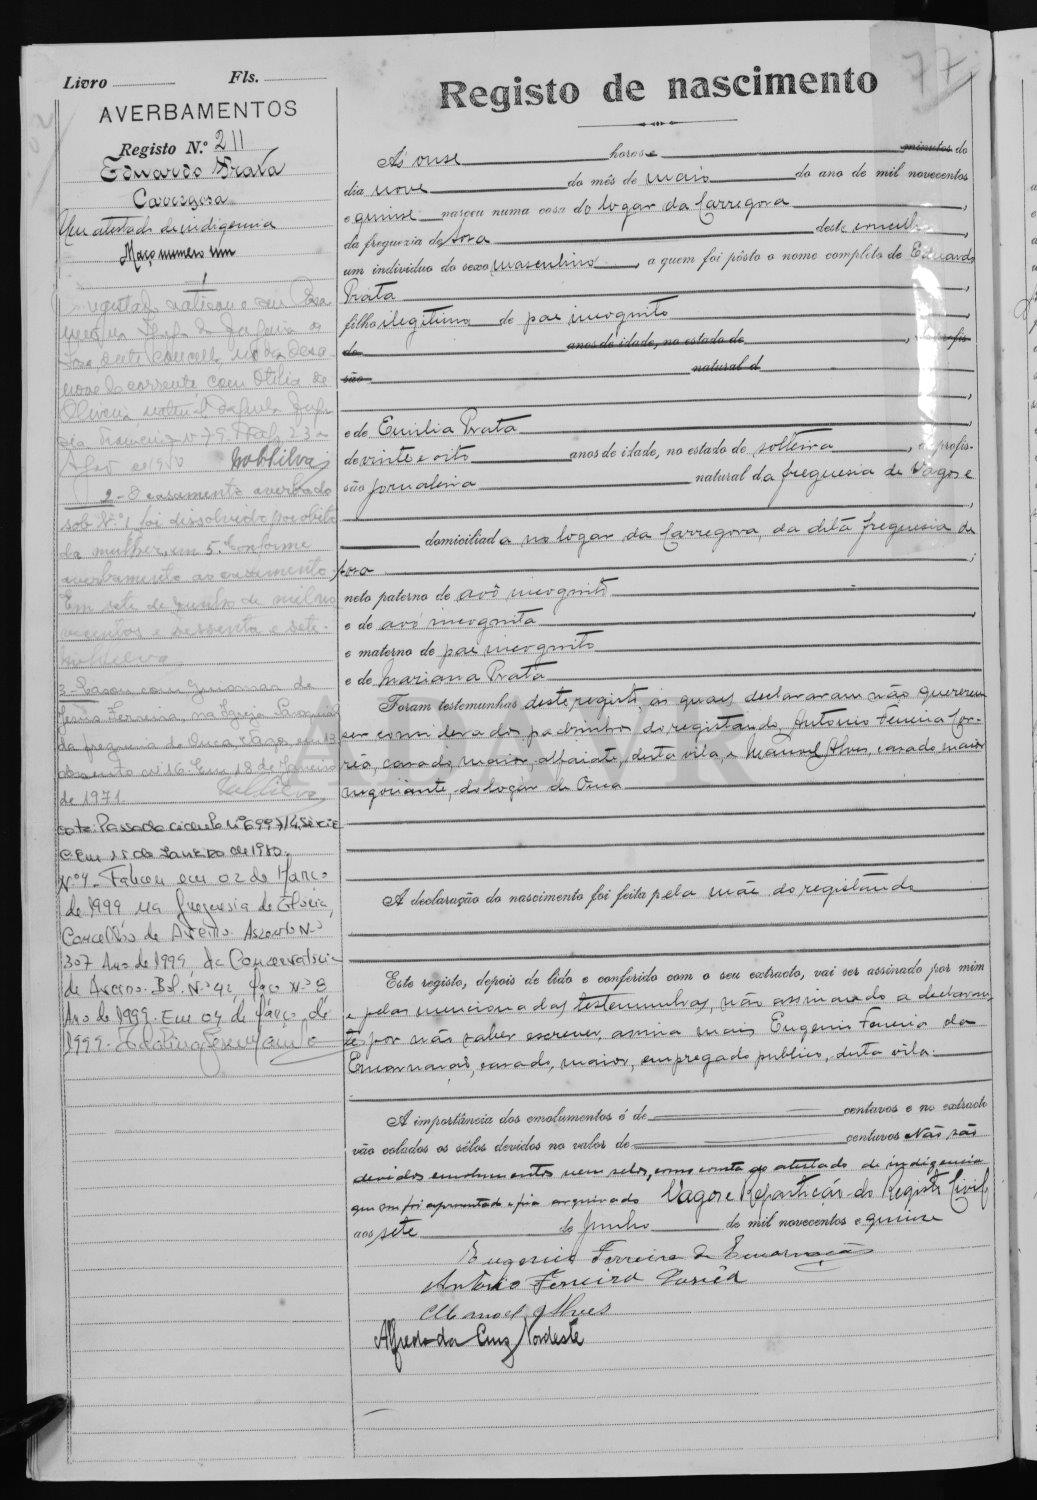 77
Livro Fls.
AVERBAMENTOS
Registo N.º 211
Eduardo Prata
Carregosa
Um atestado de indigencia
Março numero um
1
nove do corrente com Otilia de
Oliveira natural
2 - O casamento averbado
sob N.º 1 foi dissolvido por obito
da mulher, em 5. Conforme
averbamento ao casamento.
Em sete de Junho de mil no
vecentos e sessenta e sete.
3 - Casou com Guiomar de
Jesus Ferreira, na Igreja Paroquial
da freguesia de Ouca, Vagos, em 13
Assento nº 16. Em, 18 de Janeiro
de 1971.
Em 15 de Janeiro de 1980.
Nº 4 - Faleceu em 02 de Março
de 1999 na freguesia de Glória,
Concelho de Aveiro. Assento Nº
307 Ano de 1999, da Conservatoria
de Aveiro. Bol. Nº 42, Maço Nº 3
Ano de 1999. Em 04 de Março de
1999.
Registo de nascimento
Ás onse horas e minutos do
dia nove do mês de maio do ano de mil novecentos
e quinse nasceu numa casa do logar da Carregosa,
da freguezia de Sosa deste concelho,
um individuo do sexo masculino, a quem foi pôsto o nome completo de Eduardo
Prata,
filho ilegitimo de pae incognito,
de anos de idade, no estado de, de profis-
são natural d
e de Emilia Prata,
de vinte e oito anos de idade, no estado de solteira, de profis-
são jornaleira natural da freguesia de Vagos e
domiciliada no logar da Carregosa, da dita freguesia de
Sosa;
neto paterno de avô incognito
e de avó incognita,
e materno de pae incognito
e de Mariana Prata
Foram testemunhas deste registo, as quaes declararam não quererem
ser considerados padrinhos do registando, Antonio Ferreira Cor-
rêa, casado, maior, alfaiate, desta vila, e Manuel Alves, casado, maior
negociante, do logar de Ouca
A declaração do nascimento foi feita pela mãe do registando
Este registo, depois de lido e conferido com o seu extracto, vai ser assinado por mim
e pelas mencionadas testemunhas, não assinando a declaran-
te por não saber escrever, assina mais Eugenio Ferreira da
Encarnação, casado, maior, empregado publico, desta vila.
A importância dos emolumentos é de centavos e no extracto
vão colados os sêlos devidos no valor de centavos Não são
devidos emolumentos nem selos, como consta do atestado de indigencia
que me foi apresentado e fica arquivado Vagos e Repartição do Registo Civil
aos sete de Junho de mil novecentos e quinse
Eugenio Ferreira da Encarnação
Antonio Ferreira Corrêa
Manoel Alves
Alfredo da Cruz Nordeste